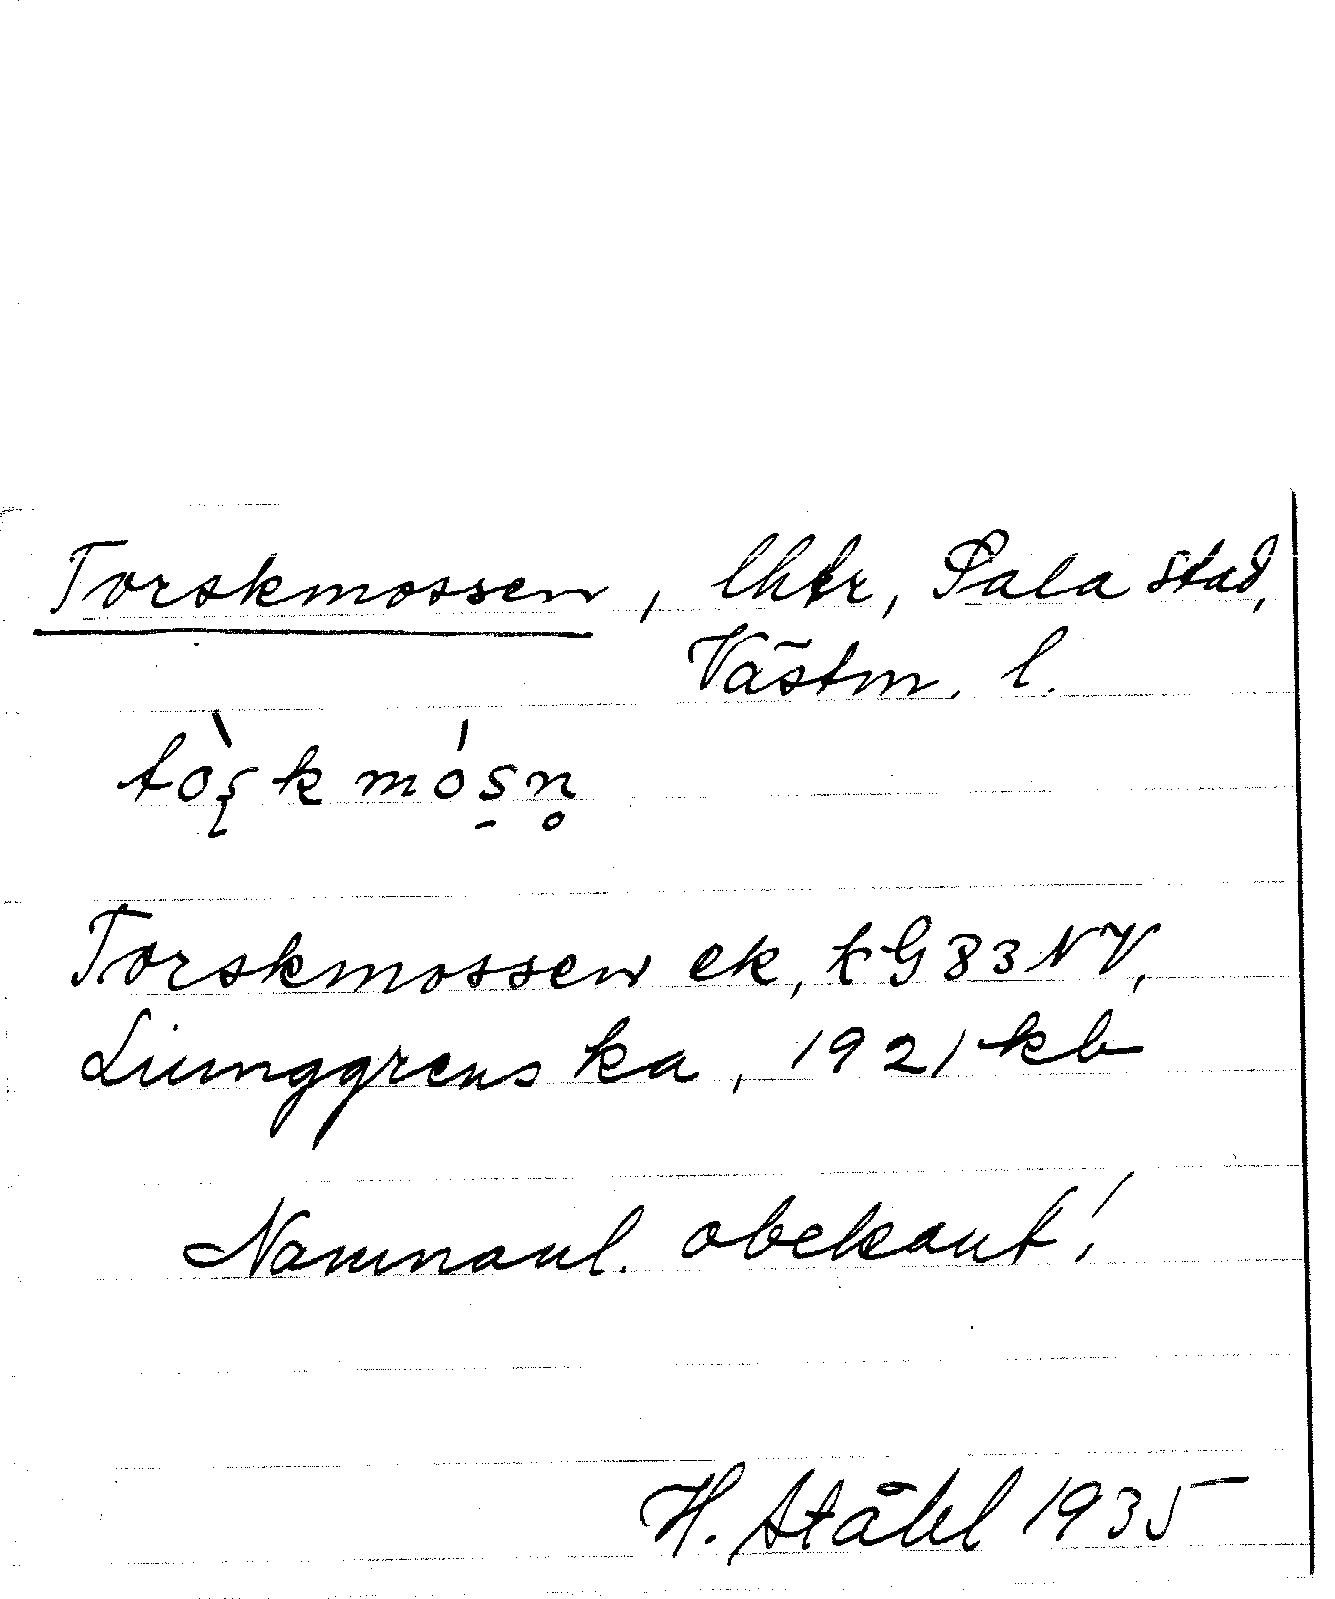 Torskmossen, lhtr, Sala stad,
Västm. l.
tòʂk mósn̥
Torskmossen ek, kG 83 NV,
Liunggrens ka, 1921 kb
Namnanl. obekant!
H. Ståhl 1935